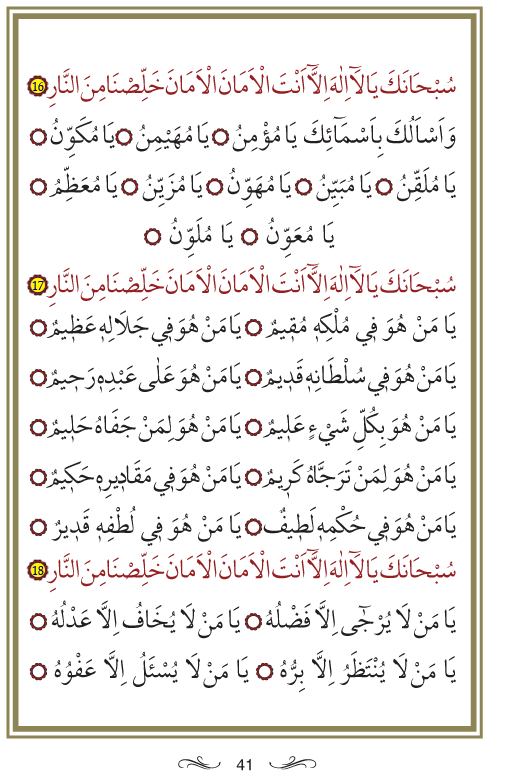 سُبْحَانَكَ يَا لَٓا اِلٰهَ اِلَّٓا اَنْتَ الْاَمَانَ الْاَمَانَ خَلِّصْنَا مِنَ النَّارِ 16
وَ اَسْاَلُكَ بِاَسْمَٓائِكَ يَا مُؤْمِنُ ۞ يَا مُهَيْمِنُ ۞ يَا مُكَوِّنُ ۞
يَا مُلَقِّنُ ۞ يَا مُبَيِّنُ ۞ يَا مُهَوِّنُ ۞ يَا مُزَيِّنُ ۞ يَا مُعَظِّمُ ۞
يَا مُعَوِّنُ ۞ يَا مُلَوِّنُ ۞
سُبْحَانَكَ يَا لَٓا اِلٰهَ اِلَّٓا اَنْتَ الْاَمَانَ الْاَمَانَ خَلِّصْنَا مِنَ النَّارِ 17
يَا مَنْ هُوَ فِي مُلْكِهِ مُقِيمٌ ۞ يَا مَنْ هُوَ فِي جَلَالِهِ عَظِيمٌ ۞
يَا مَنْ هُوَ فِي سُلْطَانِهِ قَدِيمٌ ۞ يَا مَنْ هُوَ عَلٰى عَبْدِهِ رَحِيمٌ ۞
يَا مَنْ هُوَ بِكُلِّ شَيْءٍ عَلِيمٌ ۞ يَا مَنْ هُوَ لِمَنْ جَفَاهُ حَلِيمٌ ۞
يَا مَنْ هُوَ لِمَنْ تَرَجَّاهُ كَرِيمٌ ۞ يَا مَنْ هُوَ فِي مَقَادِيرِهِ حَكِيمٌ ۞
يَا مَنْ هُوَ فِي حُكْمِهِ لَطِيفٌ ۞ يَا مَنْ هُوَ فِي لُطْفِهِ قَدِيرٌ ۞
سُبْحَانَكَ يَا لَٓا اِلٰهَ اِلَّٓا اَنْتَ الْاَمَانَ الْاَمَانَ خَلِّصْنَا مِنَ النَّارِ 18
يَا مَنْ لَا يُرْجٰٓى اِلَّا فَضْلُهُ ۞ يَا مَنْ لَا يُخَافُ اِلَّا عَدْلُهُ ۞
يَا مَنْ لَا يُنْتَظَرُ اِلَّا بِرُّهُ ۞ يَا مَنْ لَا يُسْئَلُ اِلَّا عَفْوُهُ ۞
41